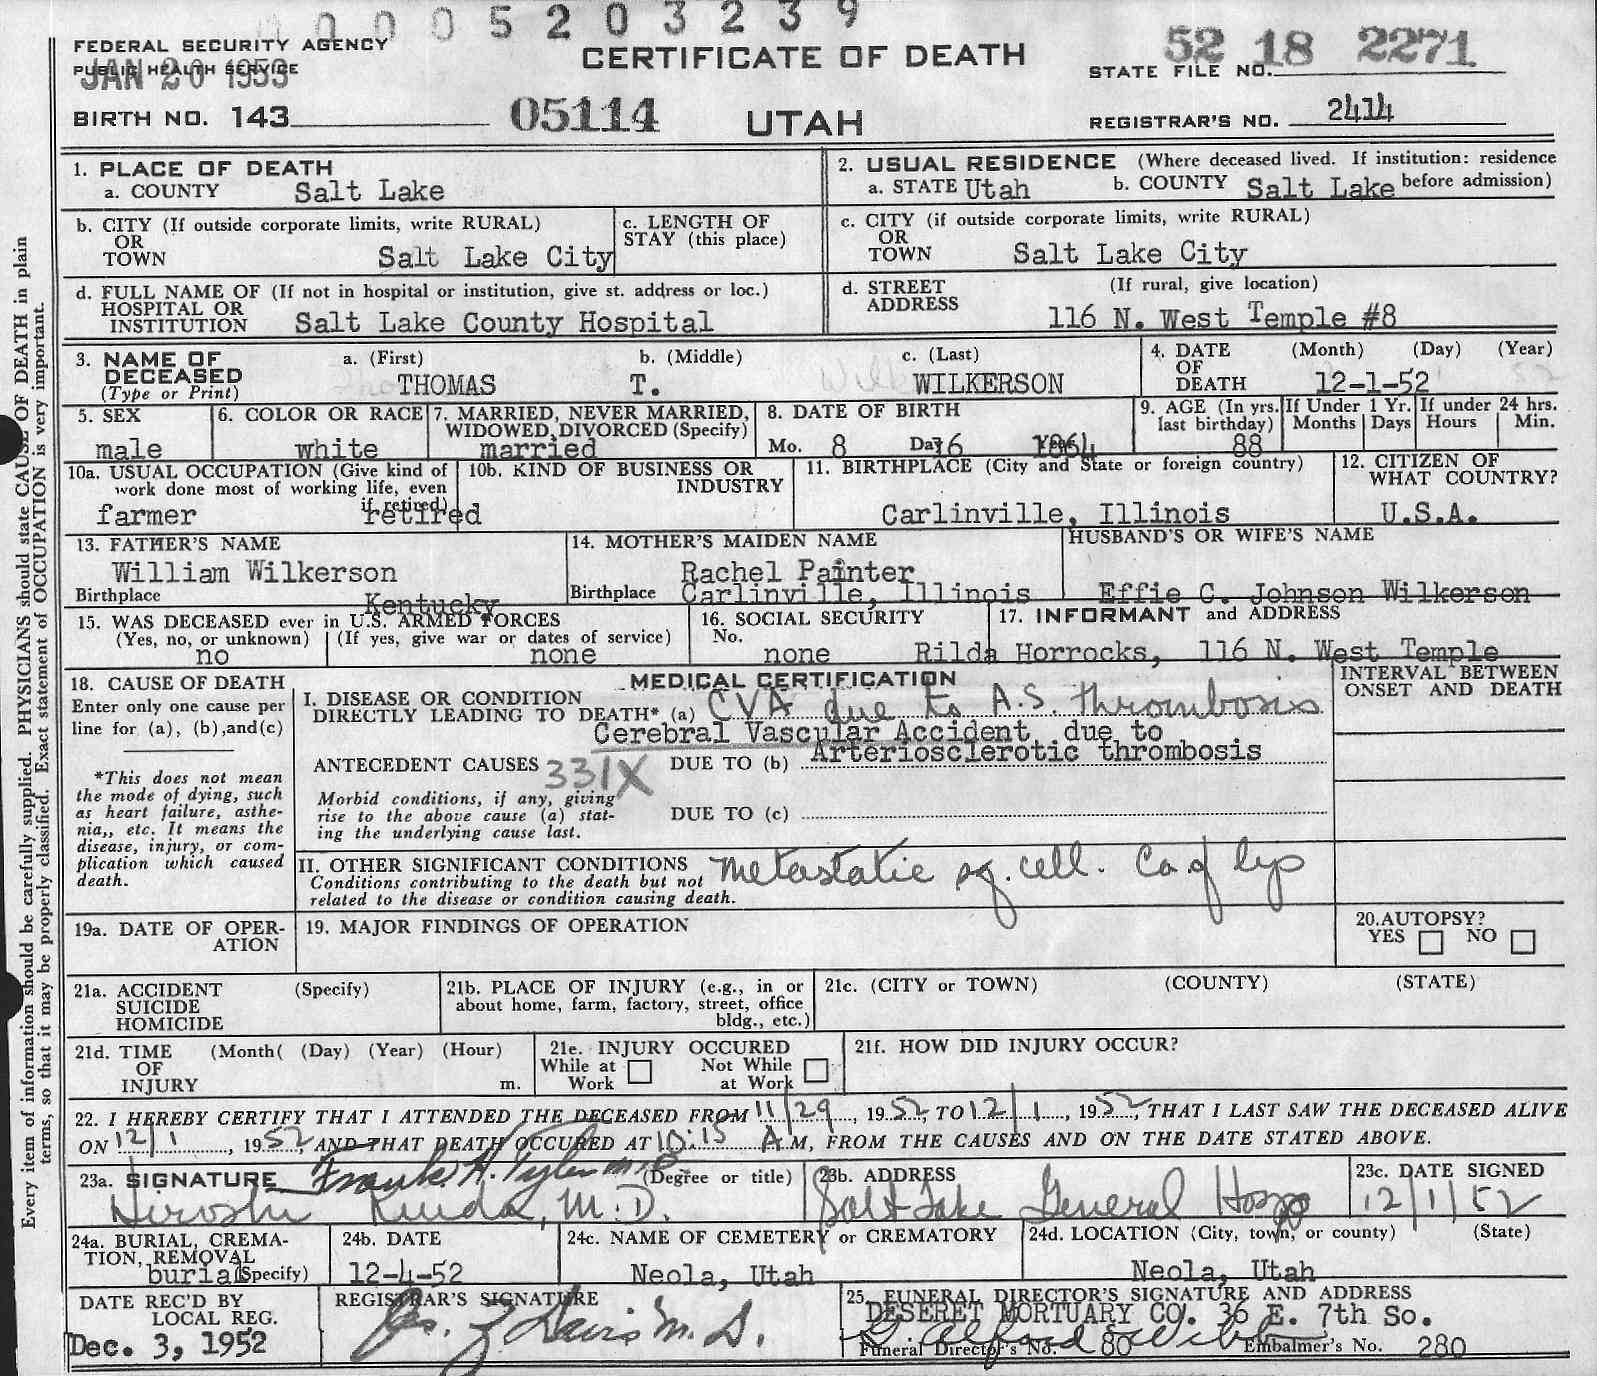 0 0 0 5 2 0 3 2 3 9
FEDERAL SECURITY AGENCY
PUBLIC HEALTH SERVICE
JAN 20 1953
CERTIFICATE OF DEATH
52 18 2271
STATE FILE NO.
BIRTH NO. 143
05114
UTAH
REGISTRAR'S NO. 2414
1. PLACE OF DEATH
a. COUNTY Salt Lake
2. USUAL RESIDENCE (Where deceased lived. If institution: residence before admission)
a. STATE Utah b. COUNTY Salt Lake
b. CITY (If outside corporate limits, write RURAL)
OR
TOWN Salt Lake City
c. LENGTH OF
STAY (this place)
c. CITY (if outside corporate limits, write RURAL)
OR
TOWN Salt Lake City
d. FULL NAME OF (If not in hospital or institution, give st. address or loc.)
HOSPITAL OR
INSTITUTION Salt Lake County Hospital
d. STREET (If rural, give location)
ADDRESS
116 N. West Temple #8
3. NAME OF
DECEASED
(Type or Print)
a. (First) b. (Middle) c. (Last)
THOMAS T. WILKERSON
4. DATE (Month) (Day) (Year)
OF
DEATH 12-1-52
5. SEX
male
6. COLOR OR RACE
white
7. MARRIED, NEVER MARRIED,
WIDOWED, DIVORCED (Specify)
married
8. DATE OF BIRTH
Mo. 8 Day 16 Year 1864
9. AGE (In yrs.
last birthday)
88
If Under 1 Yr.
Months Days
If under 24 hrs.
Hours Min.
10a. USUAL OCCUPATION (Give kind of
work done most of working life, even
if retired)
farmer retired
10b. KIND OF BUSINESS OR
INDUSTRY
11. BIRTHPLACE (City and State or foreign country)
Carlinville, Illinois
12. CITIZEN OF
WHAT COUNTRY?
U.S.A.
13. FATHER'S NAME
William Wilkerson
Birthplace Kentucky
14. MOTHER'S MAIDEN NAME
Rachel Painter
Birthplace Carlinville, Illinois
HUSBAND'S OR WIFE'S NAME
Effie C. Johnson Wilkerson
15. WAS DECEASED ever in U.S. ARMED FORCES
(Yes, no, or unknown) (If yes, give war or dates of service)
no none
16. SOCIAL SECURITY
No.
none
17. INFORMANT and ADDRESS
Rilda Horrocks, 116 N. West Temple
18. CAUSE OF DEATH
Enter only one cause per
line for (a), (b),and(c)
*This does not mean
the mode of dying, such
as heart failure, asthe-
nia,, etc. It means the
disease, injury, or com-
plication which caused
death.
MEDICAL CERTIFICATION
I. DISEASE OR CONDITION
DIRECTLY LEADING TO DEATH* (a) CVA due to A.S. thrombosis
Cerebral Vascular Accident due to
ANTECEDENT CAUSES 331X DUE TO (b) Arteriosclerotic thrombosis
Morbid conditions, if any, giving
rise to the above cause (a) stat-
ing the underlying cause last.
DUE TO (c)
INTERVAL BETWEEN
ONSET AND DEATH
II. OTHER SIGNIFICANT CONDITIONS
Conditions contributing to the death but not
related to the disease or condition causing death.
Metastatic sq. cell. Ca of lip
19a. DATE OF OPER-
ATION
19. MAJOR FINDINGS OF OPERATION
20.AUTOPSY?
YES NO
21a. ACCIDENT (Specify)
SUICIDE
HOMICIDE
21b. PLACE OF INJURY (e.g., in or
about home, farm, factory, street, office
bldg., etc.)
21c. (CITY or TOWN) (COUNTY) (STATE)
21d. TIME (Month( (Day) (Year) (Hour)
OF
INJURY m.
21e. INJURY OCCURED
While at Work Not While at Work
21f. HOW DID INJURY OCCUR?
22. I HEREBY CERTIFY THAT I ATTENDED THE DECEASED FROM 11/29, 1952 TO 12/1, 1952, THAT I LAST SAW THE DECEASED ALIVE
ON 12/1, 1952, AND THAT DEATH OCCURED AT 10:15 A.M, FROM THE CAUSES AND ON THE DATE STATED ABOVE.
23a. SIGNATURE Frank H. Tyler M.D. (Degree or title)
Hiroshi Kuida, M.D.
23b. ADDRESS
Salt Lake General Hosp
23c. DATE SIGNED
12/1/52
24a. BURIAL, CREMA-
TION, REMOVAL
(Specify)
burial
24b. DATE
12-4-52
24c. NAME OF CEMETERY or CREMATORY
Neola, Utah
24d. LOCATION (City, town, or county) (State)
Neola, Utah
DATE REC'D BY
LOCAL REG.
Dec. 3, 1952
REGISTRAR'S SIGNATURE
Davis M.D.
25. FUNERAL DIRECTOR'S SIGNATURE AND ADDRESS
DESERET MORTUARY CO. 36 E. 7th So.
Funeral Director's No. 80 Embalmer's No. 280
Every item of information should be carefully supplied. PHYSICIANS should state CAUSE OF DEATH in plain
terms, so that it may be properly classified. Exact statement of OCCUPATION is very important.